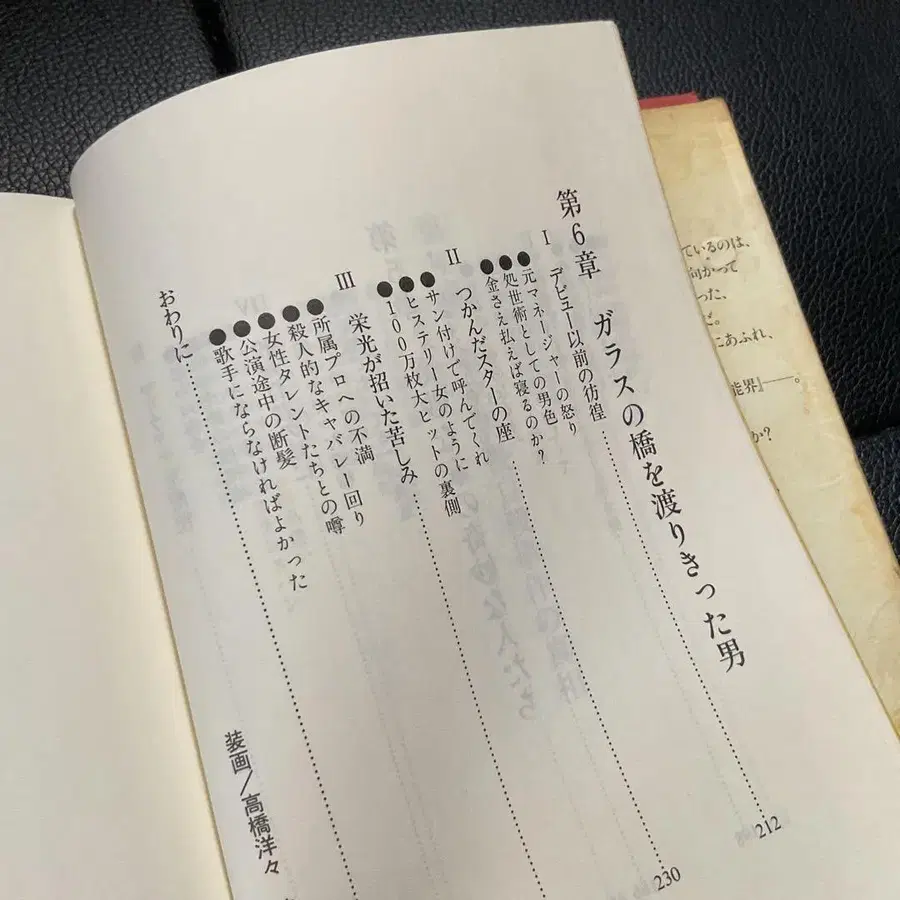 第6章 ガラスの橋を渡りきった男
I デビュー以前の彷徨 212
●元マネージャーの怒り
●処世術としての男色
●金さえ払えば寝るのか?
II つかんだスターの座 230
●サン付けで呼んでくれ
●ヒステリー女のように
●100万枚大ヒットの裏側
III 栄光が招いた苦しみ
●所属プロへの不満
●殺人的なキャバレー回り
●女性タレントたちとの噂
●公演途中の断髪
●歌手にならなければよかった
おわりに
装画/高橋洋々
ているのは、
向かって
った、
だ。
にあふれ、
能界』──。
か?